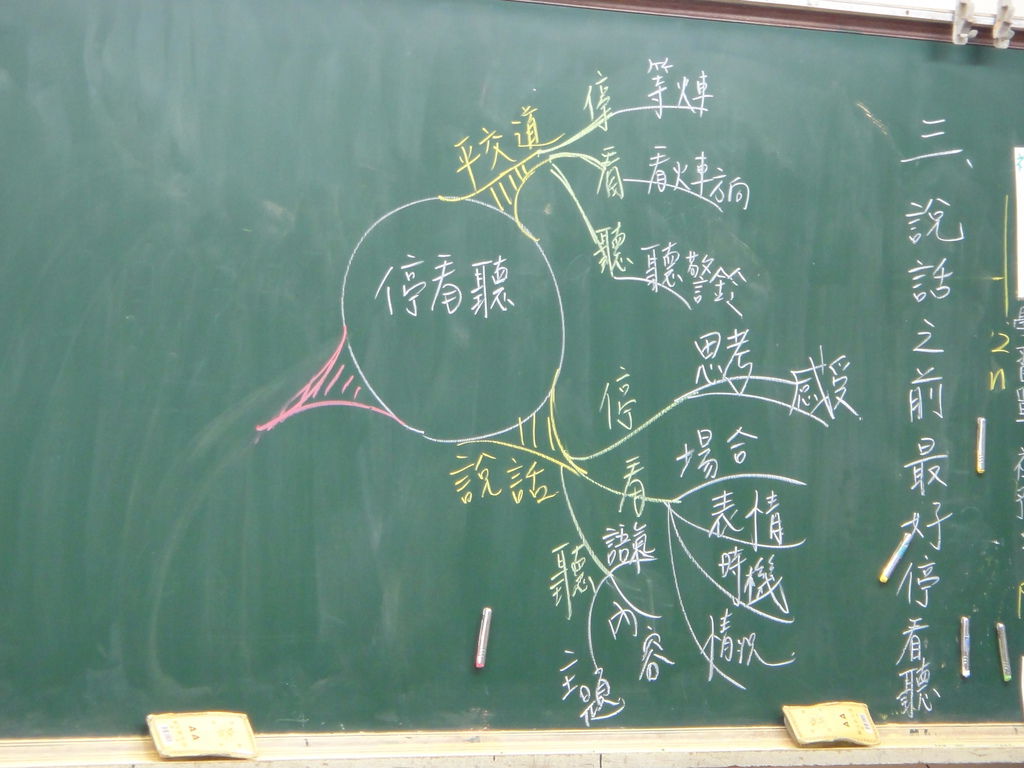 三、說話之前最好停看聽
停看聽
平交道
停
等火車
看
看火車方向
聽
聽警鈴
說話
停
思考
感受
看
場合
表情
時機
情況
聽
語氣
內容
主題
2
n